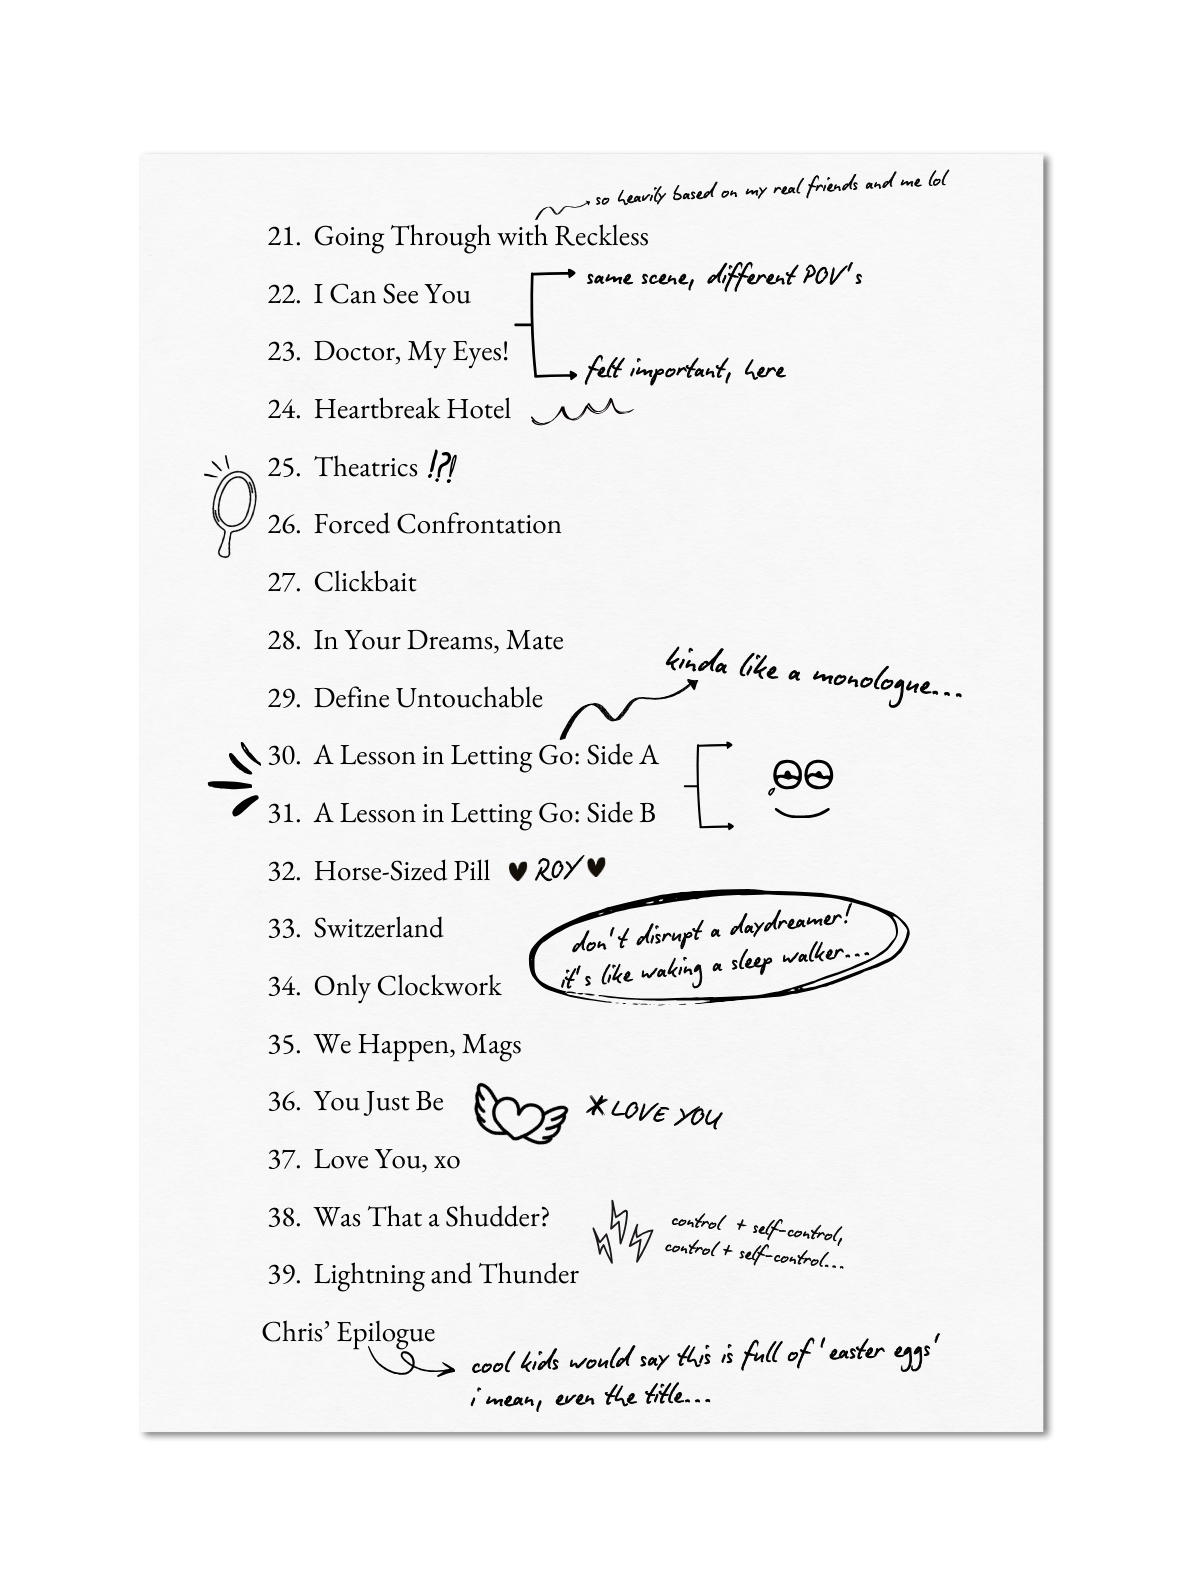 so heavily based on my real friends and me lol
21. Going Through with Reckless
same scene, different POV's
22. I Can See You
23. Doctor, My Eyes!
felt important, here
24. Heartbreak Hotel
25. Theatrics !?!
26. Forced Confrontation
27. Clickbait
28. In Your Dreams, Mate
kinda like a monologue...
29. Define Untouchable
30. A Lesson in Letting Go: Side A
31. A Lesson in Letting Go: Side B
32. Horse-Sized Pill ♥ ROY ♥
33. Switzerland
don't disrupt a daydreamer!
it's like waking a sleep walker...
34. Only Clockwork
35. We Happen, Mags
36. You Just Be
*LOVE YOU
37. Love You, xo
38. Was That a Shudder?
control + self-control,
control + self-control...
39. Lightning and Thunder
Chris’ Epilogue
cool kids would say this is full of 'easter eggs'
i mean, even the title...